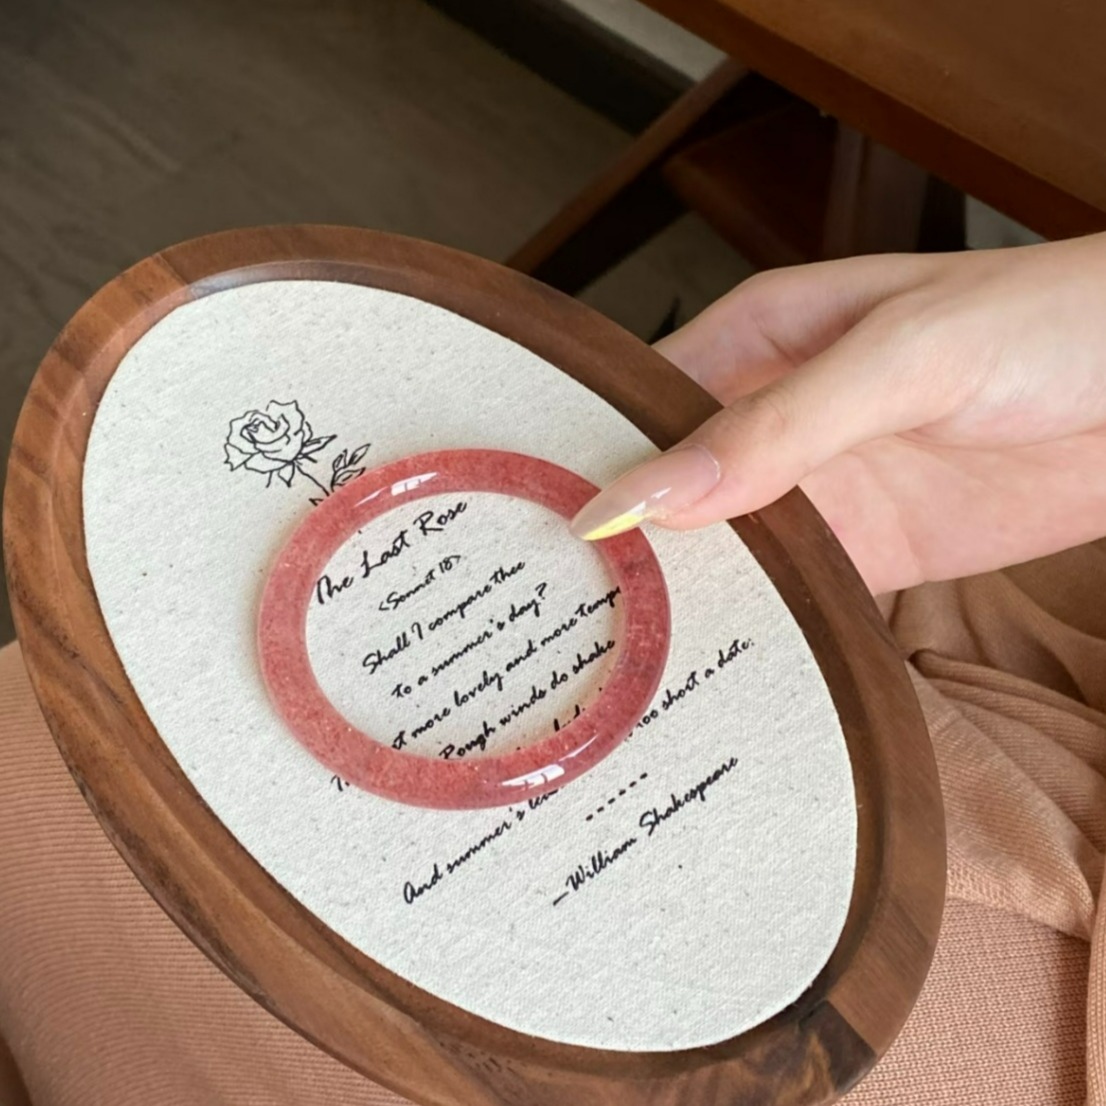 The Last Rose
<Sonnet 18>
Shall I compare thee
to a summer's day?
more lovely and more tempe
Rough winds do shake
And summer's lea too short a date:
------
—William Shakespeare